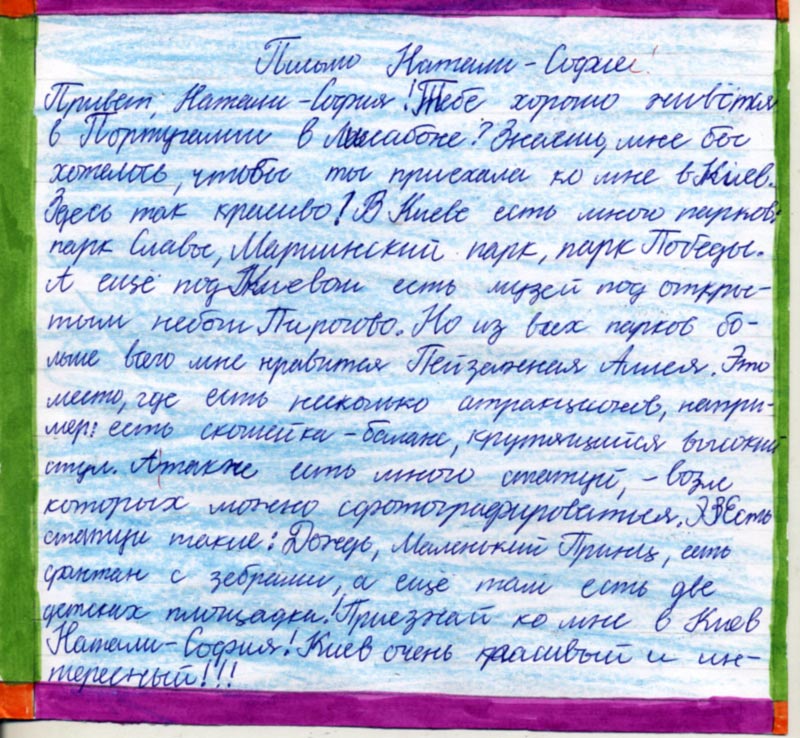 Письмо Натали-Софие!
Привет, Натали-София! Тебе хорошо живётся
в Португалии в Лиссабоне? Знаешь, мне бы
хотелось, чтобы ты приехала ко мне в Киев.
Здесь так красиво! В Киеве есть много парков:
парк Славы, Мариинский парк, парк Победы.
А ещё под Киевом есть музей под откры-
тым небом Пирогово. Но из всех парков бо-
льше всего мне нравится Пейзажная Аллея. Это
место, где есть несколько аттракционов, напри-
мер: есть скамейка-баланс, крутящийся высокий
стул. А также есть много статуй, - возле
которых можно сфотографироваться. Есть
статуи такие: Дождь, Маленький Принц, есть
фонтан с зебрами, а ещё там есть две
детских площадки! Приезжай ко мне в Киев
Натали-София! Киев очень красивый и ин-
тересный!!!